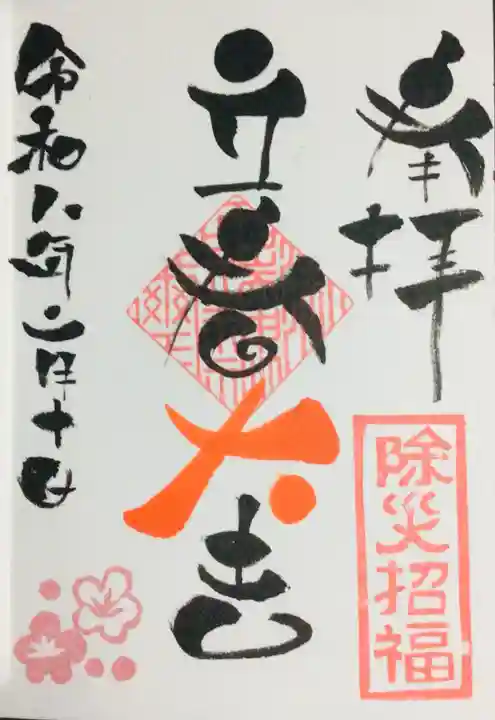 奉拝
除災招福
立春大吉
令和六年二月十日